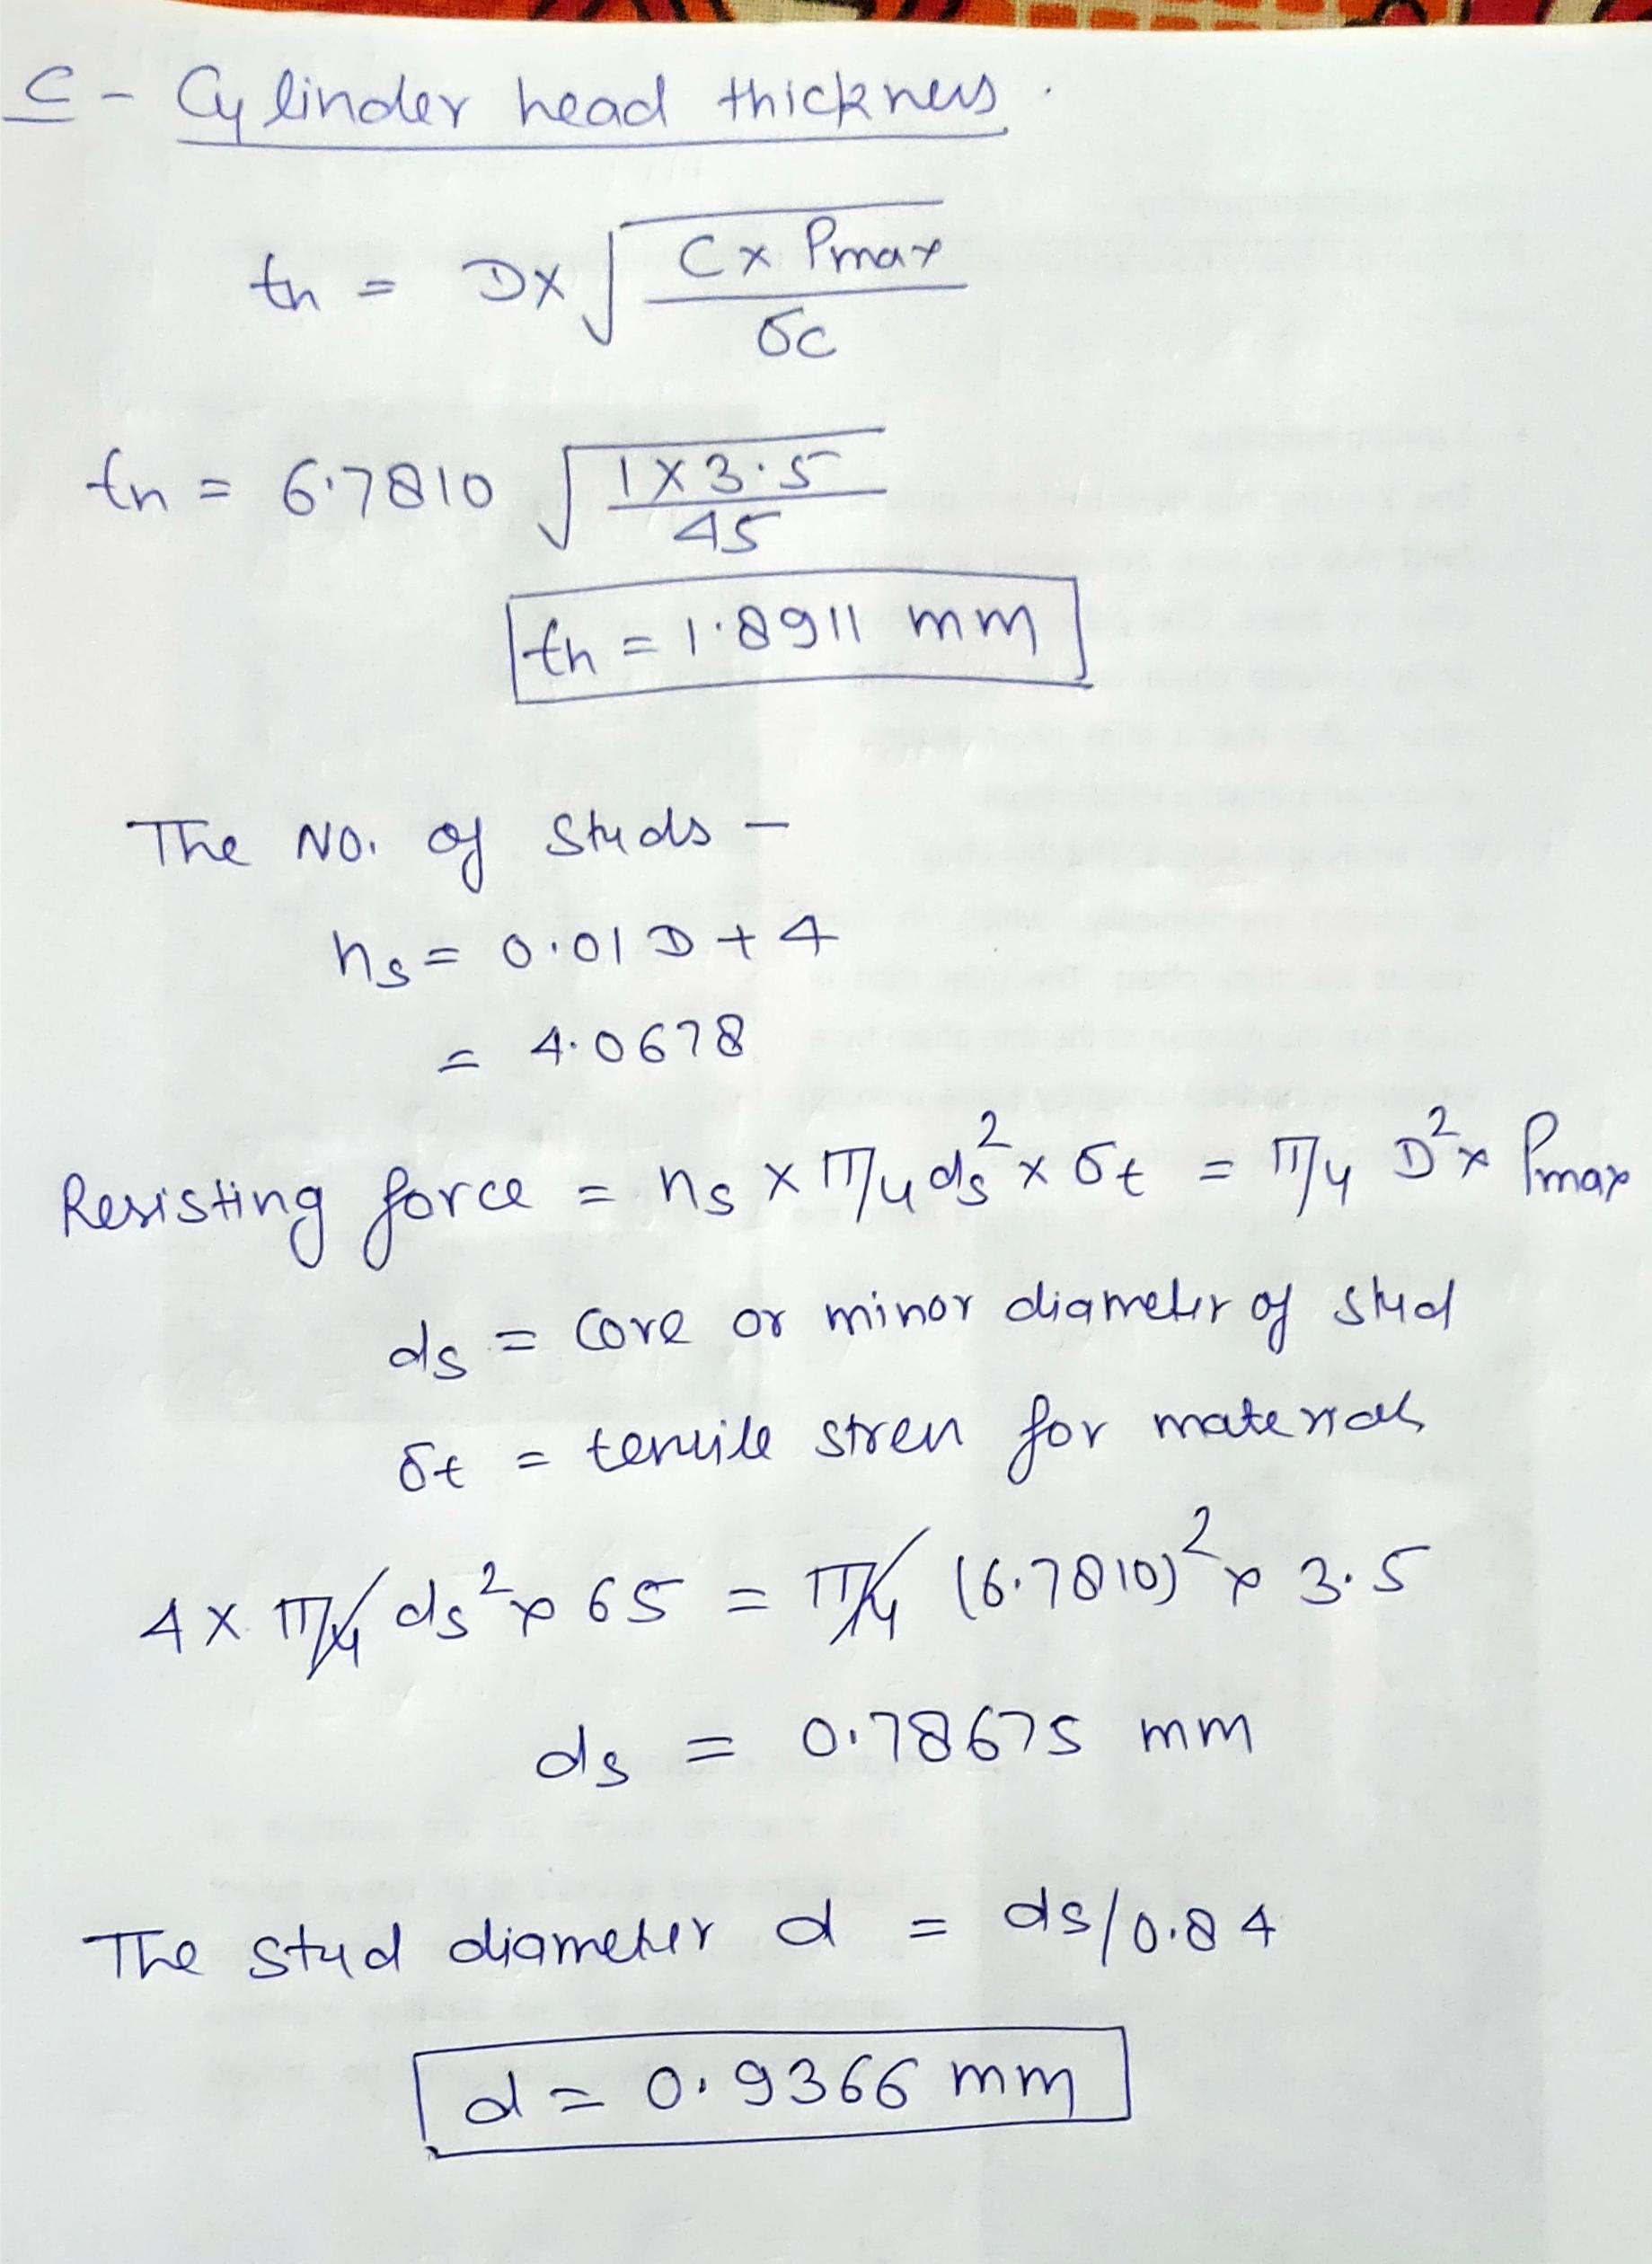 C - Cylinder head thickness.
th = D× √(C× Pmax / σc)
th = 6.7810 √(1×3.5 / 45)
th = 1.8911 mm
The No. of studs -
ns = 0.01D + 4
= 4.0678
Resisting force = ns × π/4 ds² × σt = π/4 D² × Pmax
ds = core or minor diameter of stud
σt = tensile stress for materials
4 × π/4 ds² × 65 = π/4 (6.7810)² × 3.5
ds = 0.78675 mm
The stud diameter d = ds/0.84
d = 0.9366 mm